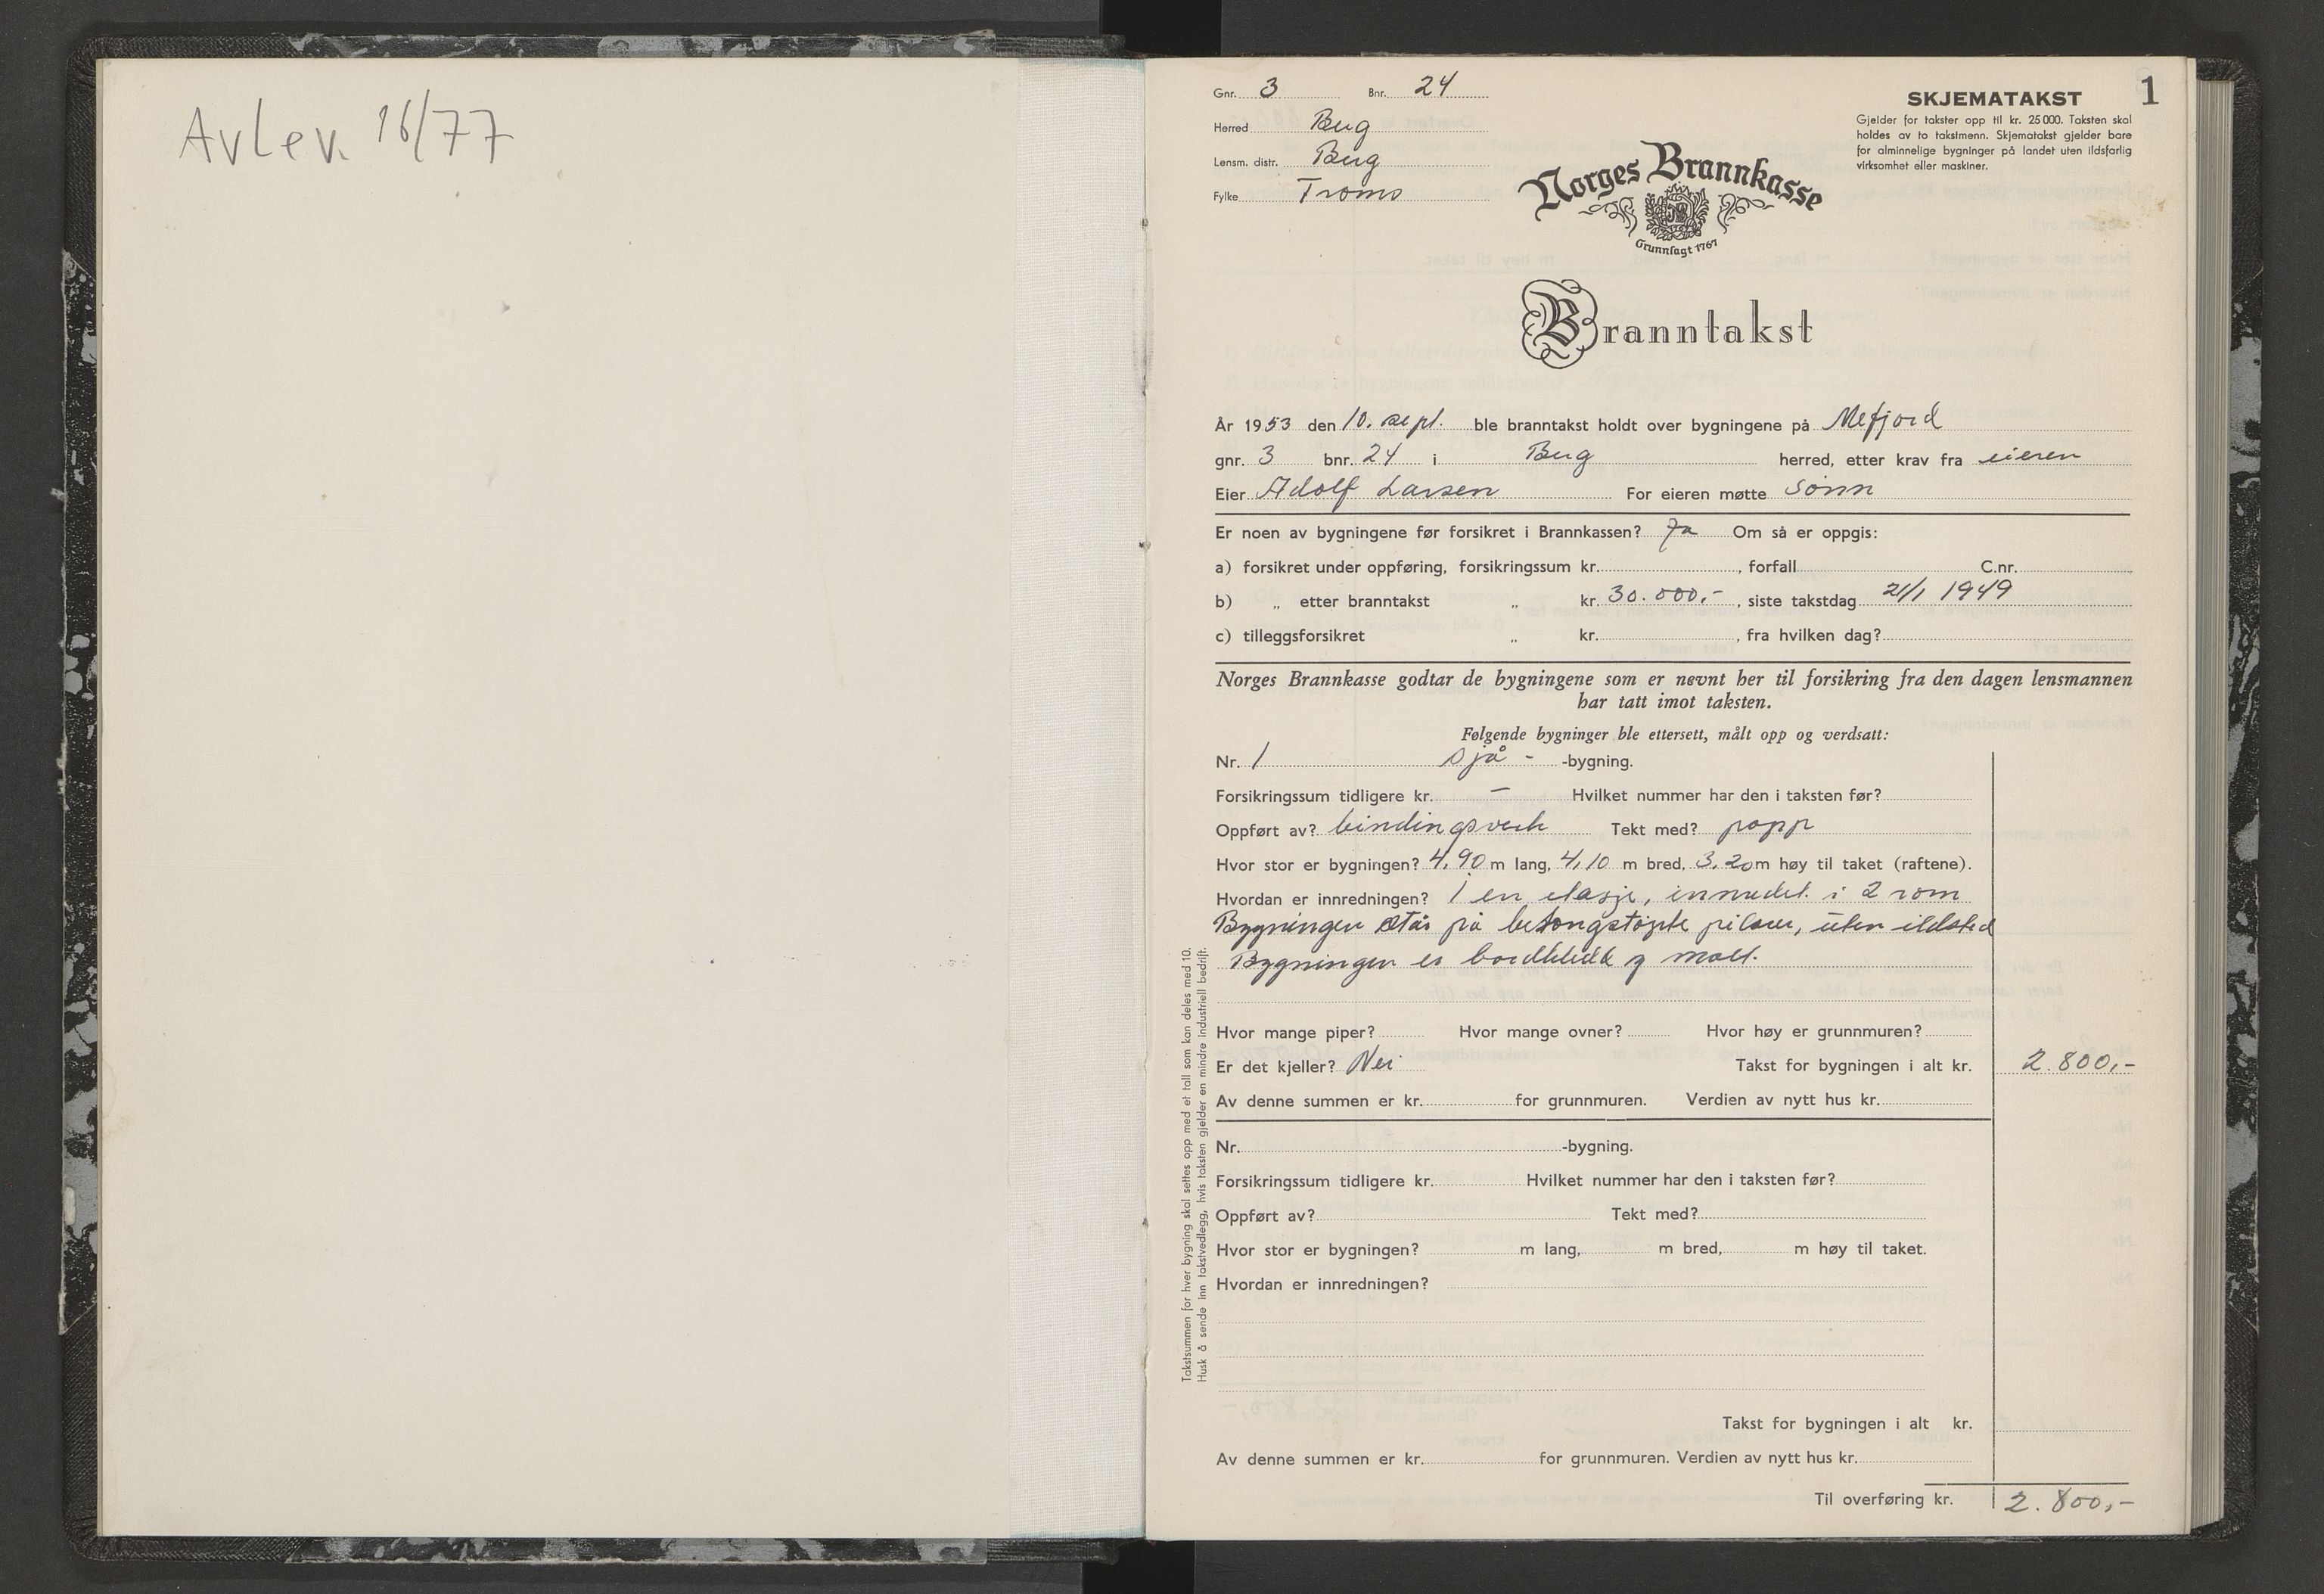 Avlev. 16/77
1
SKJEMATAKST
Gjelder for takster opp til kr. 25 000. Taksten skal
holdes av to takstmenn. Skjematakst gjelder bare
for alminnelige bygninger på landet uten ildsfarlig
virksomhet eller maskiner.
Gnr. 3 Bnr. 24
Herred Berg
Lensm. distr. Berg
Fylke Troms
Norges Brannkasse
Grunnlagt 1767
Branntakst
År 1953 den 10. sept. ble branntakst holdt over bygningene på Mefjord
gnr. 3 bnr. 24 i Berg herred, etter krav fra eieren
Eier Adolf Larsen For eieren møtte sønn
Er noen av bygningene før forsikret i Brannkassen? Ja Om så er oppgis:
a) forsikret under oppføring, forsikringssum kr. , forfall C.nr.
b) „ etter branntakst „ kr. 30.000,- , siste takstdag 21/1 1949
c) tilleggsforsikret „ kr. , fra hvilken dag?
Norges Brannkasse godtar de bygningene som er nevnt her til forsikring fra den dagen lensmannen
har tatt imot taksten.
Følgende bygninger ble ettersett, målt opp og verdsatt:
Nr. 1 sjå - -bygning.
Forsikringssum tidligere kr. – Hvilket nummer har den i taksten før?
Oppført av? bindingsverk Tekt med? papp
Hvor stor er bygningen? 4,90 m lang, 4,10 m bred, 3,20 m høy til taket (raftene).
Hvordan er innredningen? I en etasje, innredet i 2 rom
Bygningen står på betongstøpte pilarer, uten ildsted
Bygningen er bordkledt og malt.
Hvor mange piper? Hvor mange ovner? Hvor høy er grunnmuren?
Er det kjeller? Nei Takst for bygningen i alt kr. 2.800,-
Av denne summen er kr. for grunnmuren. Verdien av nytt hus kr.
Nr. -bygning.
Forsikringssum tidligere kr. Hvilket nummer har den i taksten før?
Oppført av? Tekt med?
Hvor stor er bygningen? m lang, m bred, m høy til taket.
Hvordan er innredningen?
Takst for bygningen i alt kr.
Av denne summen er kr. for grunnmuren. Verdien av nytt hus kr.
Til overføring kr. 2.800,-
Takstsummen for hver bygning skal settes opp med et tall som kan deles med 10.
Husk å sende inn takstvedlegg, hvis taksten gjelder en mindre industriell bedrift.